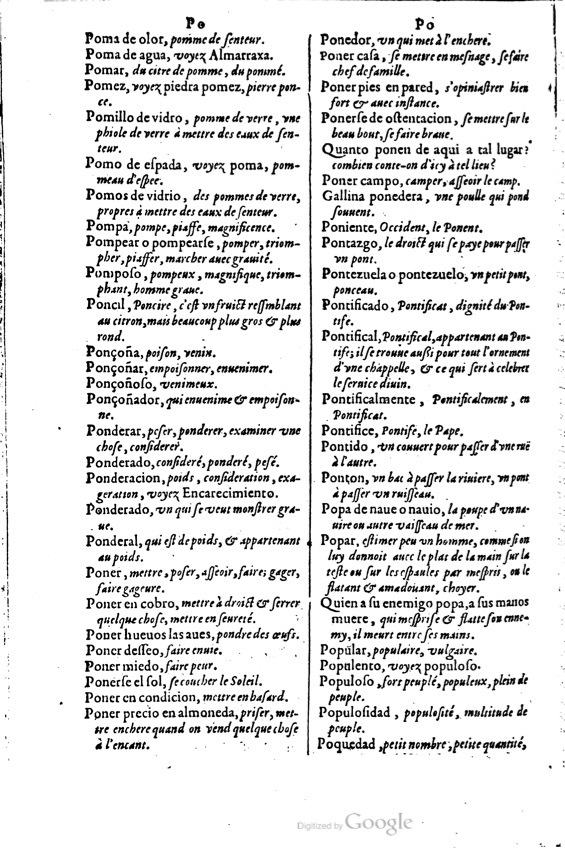 Po
Poma de olor, pomme de ſenteur.
Poma de agua, voyez Almarraxa.
Pomar, du citre de pomme, du pommé.
Pomez, voyez piedra pomez, pierre pon-
ce.
Pomillo de vidro, pomme de verre, vne
phiole de verre à mettre des eaux de ſen-
teur.
Pomo de eſpada, voyez poma, pom-
meau d'eſpee.
Pomos de vidrio, des pommes de verre,
propres à mettre des eaux de ſenteur.
Pompa, pompe, piaffe, magnificence.
Pompear o pompearſe, pomper, triom-
pher, piaffer, marcher auec grauité.
Pompoſo, pompeux, magnifique, triom-
phant, homme graue.
Poncil, Poncire, c'eſt vn fruict reſſemblant
au citron, mais beaucoup plus gros & plus
rond.
Ponçoña, poiſon, venin.
Ponçoñar, empoiſonner, enuenimer.
Ponçoñoſo, venimeux.
Ponçoñador, qui enuenime & empoiſon-
ne.
Ponderar, peſer, ponderer, examiner vne
choſe, conſiderer.
Ponderado, conſideré, ponderé, peſé.
Ponderacion, poids, conſideration, exa-
geration, voyez Encarecimento.
Ponderado, vn qui ſe veut monſtrer gra-
ue.
Ponderal, qui eſt de poids, & appartenant
au poids.
Poner, mettre, poſer, aſſeoir, faire; gager,
faire gageure.
Poner en cobro, mettre à droict & ſerrer
quelque choſe, mettre en ſeureté.
Poner hueuos las aues, pondre des œufs.
Poner deſſeo, faire enuie.
Poner miedo, faire peur.
Ponerſe el sol, ſe coucher le Soleil.
Poner en condicion, mettre en haſard.
Poner precio en almoneda, priſer, met-
tre enchere quand on vend quelque choſe
à l'encant.
Po
Ponedor, vn qui met à l'enchere.
Poner caſa, ſe mettre en meſnage, ſe faire
chef de famille.
Poner pies en pared, s'opiniaſtrer bien
fort & auec inſtance.
Ponerſe de oſtentacion, ſe mettre ſur le
beau bout, ſe faire braue.
Quanto ponen de aqui a tal lugar?
combien conte-on d'icy à tel lieu?
Poner campo, camper, aſſeoir le camp.
Gallina ponedera, vne poulle qui pond
ſouuent.
Poniente, Occident, le Ponent.
Pontazgo, le droict qui ſe paye pour paſſer
vn pont.
Pontezuela o pontezuelo, vn petit pont,
ponceau.
Pontificado, Pontificat, dignité du Pon-
tife.
Pontifical, Pontifical, appartenant au Pon-
tife; il ſe trouue auſſi pour tout l'ornement
d'vne chappelle, & ce qui ſert à celebrer
le ſeruice diuin.
Pontificalmente, Pontificalement, en
Pontificat.
Pontifice, Pontife, le Pape.
Pontido, vn couuert pour paſſer d'vne ruë
à l'autre.
Ponton, vn bac à paſſer la riuiere, vn pont
à paſſer vn ruiſſeau.
Popa de naue o nauio, la poupe d'vn na-
uire ou autre vaiſſeau de mer.
Popar, eſtimer peu vn homme, comme ſi on
luy donnoit auec le plat de la main ſur la
teſte ou ſur les eſpaules par meſpris, ou le
flatant & amadouant, choyer.
Quien a ſu enemigo popa, a ſus manos
muere, qui meſpriſe & flatte ſon enne-
my, il meurt entre ſes mains.
Popular, populaire, vulgaire.
Populento, voyez populoſo.
Populoſo, fort peuplé, populeux, plein de
peuple.
Populoſidad, populoſité, multitude de
peuple.
Poquedad, petit nombre, petite quantité,
Digitized by Google